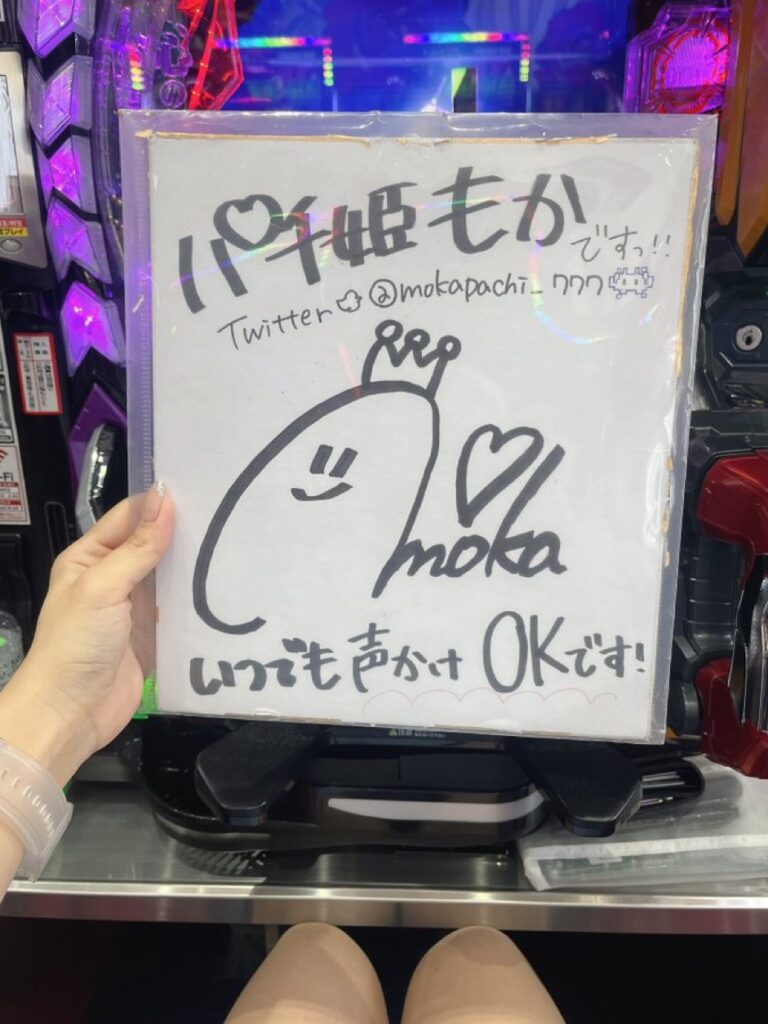 パチ姫もかですっ!!
Twitter @mokapachi_777
moka
いつでも声かけOKです!